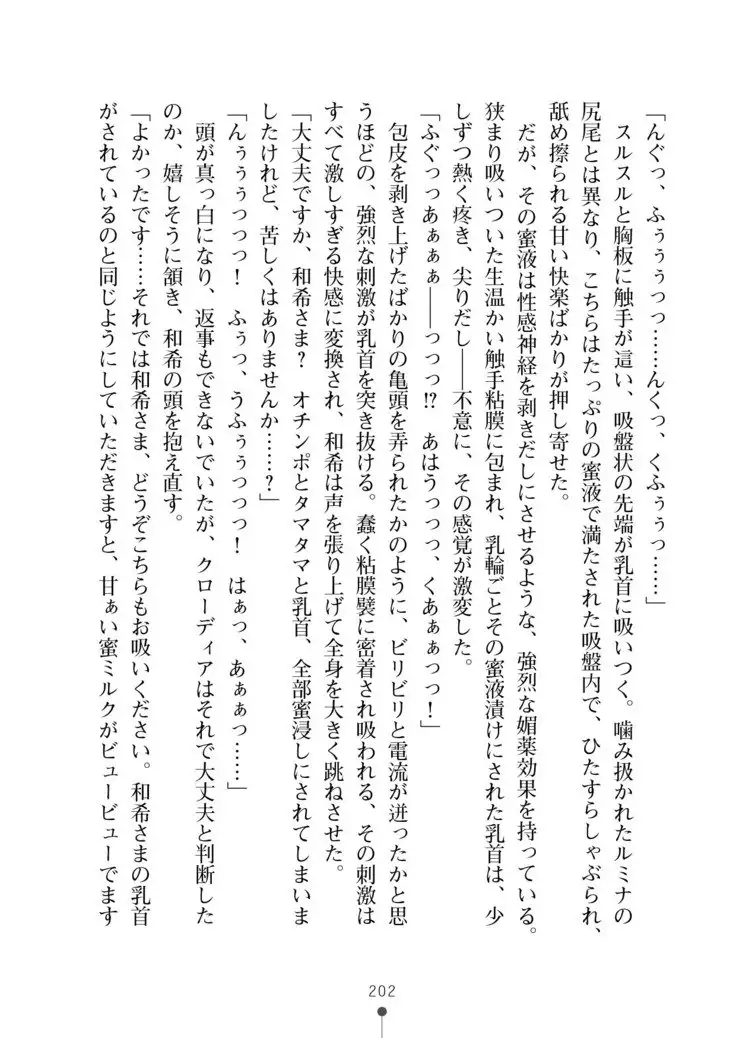 「んぐっ、ふぅぅぅっっ……んくっ、くふぅぅっ……」
スルスルと胸板に触手が這い、吸盤状の先端が乳首に吸いつく。噛み扱かれたルミナの
尻尾とは異なり、こちらはたっぷりの蜜液で満たされた吸盤内で、ひたすらしゃぶられ、
舐め擦られる甘い快楽ばかりが押し寄せた。
だが、その蜜液は性感神経を剥きだしにさせるような、強烈な媚薬効果を持っている。
狭まり吸いついた生温かい触手粘膜に包まれ、乳輪ごとその蜜液漬けにされた乳首は、少
しずつ熱く疼き、尖りだし――不意に、その感覚が激変した。
「ふぐっっあぁぁぁ――っっっ!?　あはうっっっ、くあぁぁっっ！」
包皮を剥き上げたばかりの亀頭を弄られたかのように、ビリビリと電流が迸ったかと思
うほどの、強烈な刺激が乳首を突き抜ける。蠢く粘膜襞に密着され吸われる、その刺激は
すべて激しすぎる快感に変換され、和希は声を張り上げて全身を大きく跳ねさせた。
「大丈夫ですか、和希さま？　オチンポとタマタマと乳首、全部蜜浸しにされてしまいま
したけれど、苦しくはありませんか……？」
「んぅぅぅっっっ！　ふぅっ、うふぅぅっっっ！　はぁっ、あぁぁっ……」
頭が真っ白になり、返事もできないでいたが、クローディアはそれで大丈夫と判断した
のか、嬉しそうに頷き、和希の頭を抱え直す。
「よかったです……それでは和希さま、どうぞこちらもお吸いください。和希さまの乳首
がされているのと同じようにしていただきますと、甘ぁい蜜ミルクがビュービューでます
202